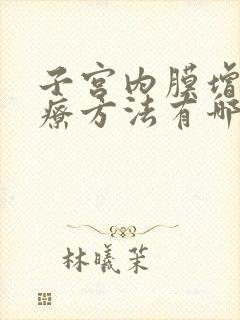 子宫内膜增
疗方法有哪
林曦茉